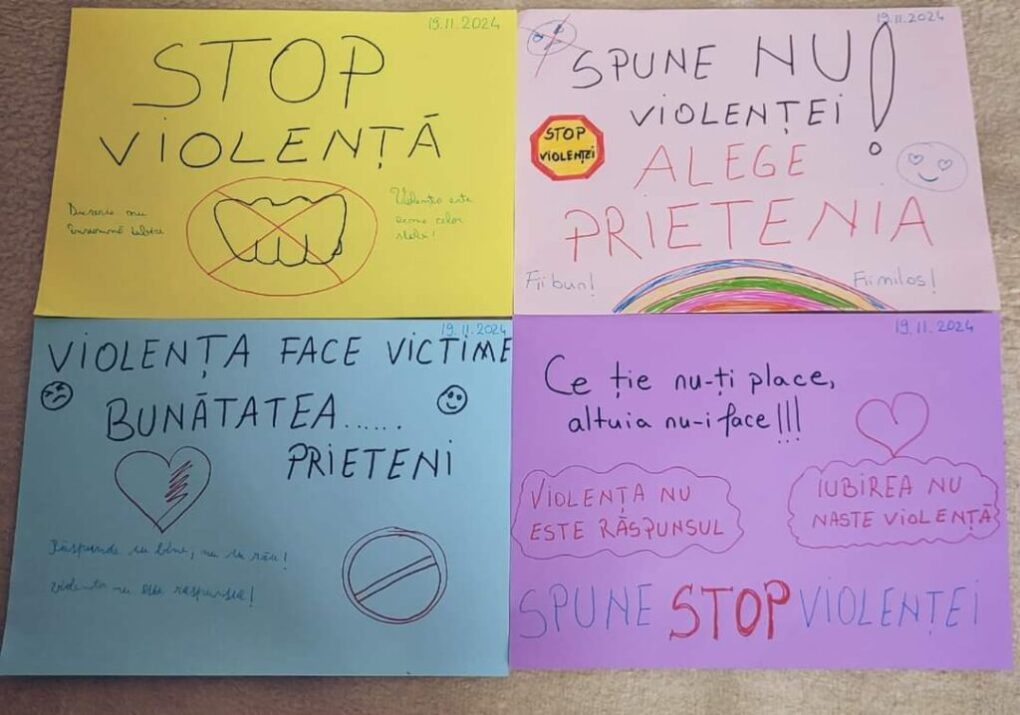 19.11.2024
STOP
VIOLENȚĂ
Violența este
arma celor
slabi!
19.11.2024
SPUNE NU!
VIOLENȚEI
STOP
VIOLENȚEI
ALEGE
PRIETENIA
Fii bun!
Fii milos!
19.11.2024
VIOLENȚA FACE VICTIME
BUNĂTATEA......
PRIETENI
Răspunde cu bine, nu cu rău!
Violența nu este răspunsul!
19.11.2024
Ce ție nu-ți place,
altuia nu-i face!!!
VIOLENȚA NU
ESTE RĂSPUNSUL
IUBIREA NU
NASTE VIOLENȚĂ
SPUNE STOP VIOLENȚEI